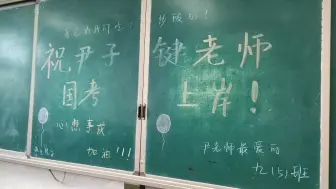 祝尹子键老师
国考上岸!
心想事成
加油!!!
尹老师最爱的
九(5)班